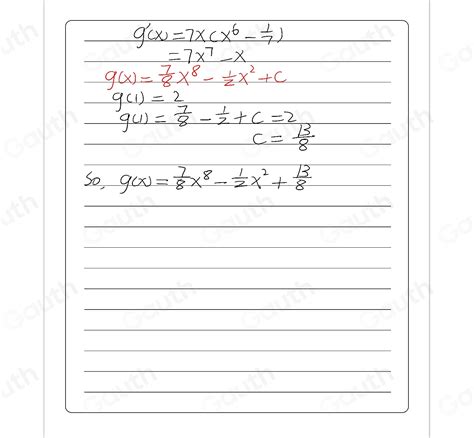 g'(x) = 7x(x⁶ - 1/7)
= 7x⁷ - x
g(x) = 7/8 x⁸ - 1/2 x² + C
g(1) = 2
g(1) = 7/8 - 1/2 + C = 2
C = 13/8
So, g(x) = 7/8 x⁸ - 1/2 x² + 13/8
Gauth